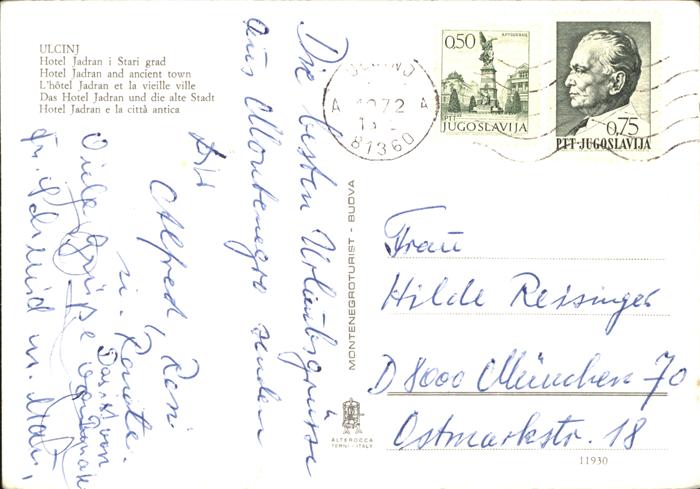 ULCINJ
Hotel Jadran i Stari grad
Hotel Jadran and ancient town
L'hôtel Jadran et la vieille ville
Das Hotel Jadran und die alte Stadt
Hotel Jadran e la città antica
Die besten Urlaubsgrüsse
aus Montenegro senden
Dir
Alfred, Resi
u. Renate.
Viele Grüsse
MONTENEGROTURIST - BUDVA
ALTEROCCA
TERNI - ITALY
0,50
PTT
JUGOSLAVIJA
0,75
PTT-JUGOSLAVIJA
A 1972 A
81360
Frau
Hilde Reisinger
D 8000 München 70
Ostmarkstr. 18
11930